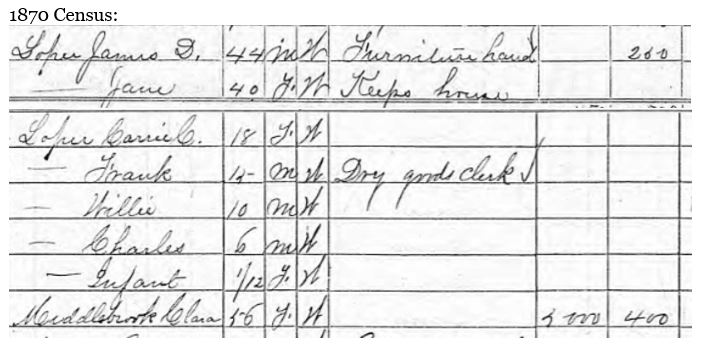 1870 Census:
Loper James D. 44 M W Furniture hand 200
— Jane 40 F. W Keeps house
Loper Carrie C. 18 F. W
— Frank 15 M W Dry goods clerk
— Willie 10 M W
— Charles 6 M W
— Infant 1/12 F. W
Middlebrook Clara 56 F. W 5000 400